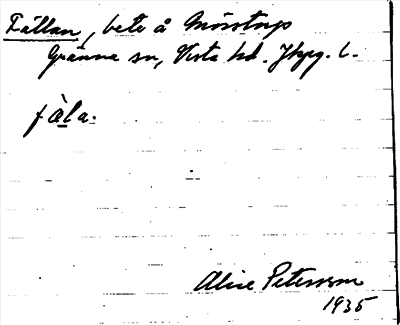 Fållan, bete å Mörstorp
Gränna sn, Vista hd. Jkpg. l.
fàla.
Alice Petersson
1935